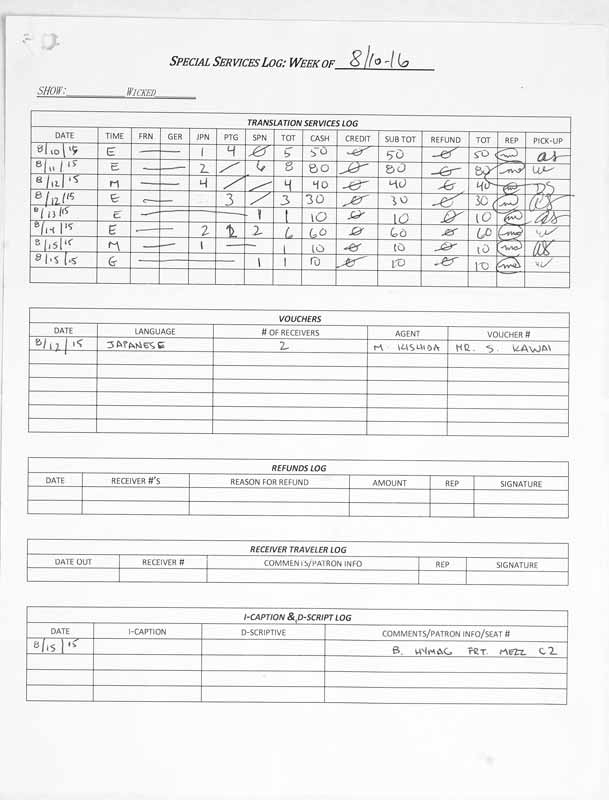 SPECIAL SERVICES LOG: WEEK OF 8/10-16
SHOW: WICKED
TRANSLATION SERVICES LOG
DATE TIME FRN GER JPN PTG SPN TOT CASH CREDIT SUB TOT REFUND TOT REP PICK-UP
8/10/15 E — 1 4 Ø 5 50 Ø 50 Ø 50 mo as
8/11/15 E — 2 / 6 8 80 Ø 80 Ø 80 mo
8/12/15 M — 4 / / 4 40 Ø 40 Ø 40 mo DS
8/12/15 E — 3 / 3 30 Ø 30 Ø 30 mo
8/13/15 E — 1 1 10 Ø 10 Ø 10 mo as
8/14/15 E — 2 2 2 6 60 Ø 60 Ø 60 mo
8/15/15 M — 1 — 1 10 Ø 10 Ø 10 mo as
8/15/15 E — 1 1 10 Ø 10 Ø 10 mo
VOUCHERS
DATE LANGUAGE # OF RECEIVERS AGENT VOUCHER #
8/12/15 JAPANESE 2 M. KISHIDA MR. S. KAWAI
REFUNDS LOG
DATE RECEIVER #'S REASON FOR REFUND AMOUNT REP SIGNATURE
RECEIVER TRAVELER LOG
DATE OUT RECEIVER # COMMENTS/PATRON INFO REP SIGNATURE
I-CAPTION & D-SCRIPT LOG
DATE I-CAPTION D-SCRIPTIVE COMMENTS/PATRON INFO/SEAT #
8/15/15 B. HYMAG FRT. MEZZ C2